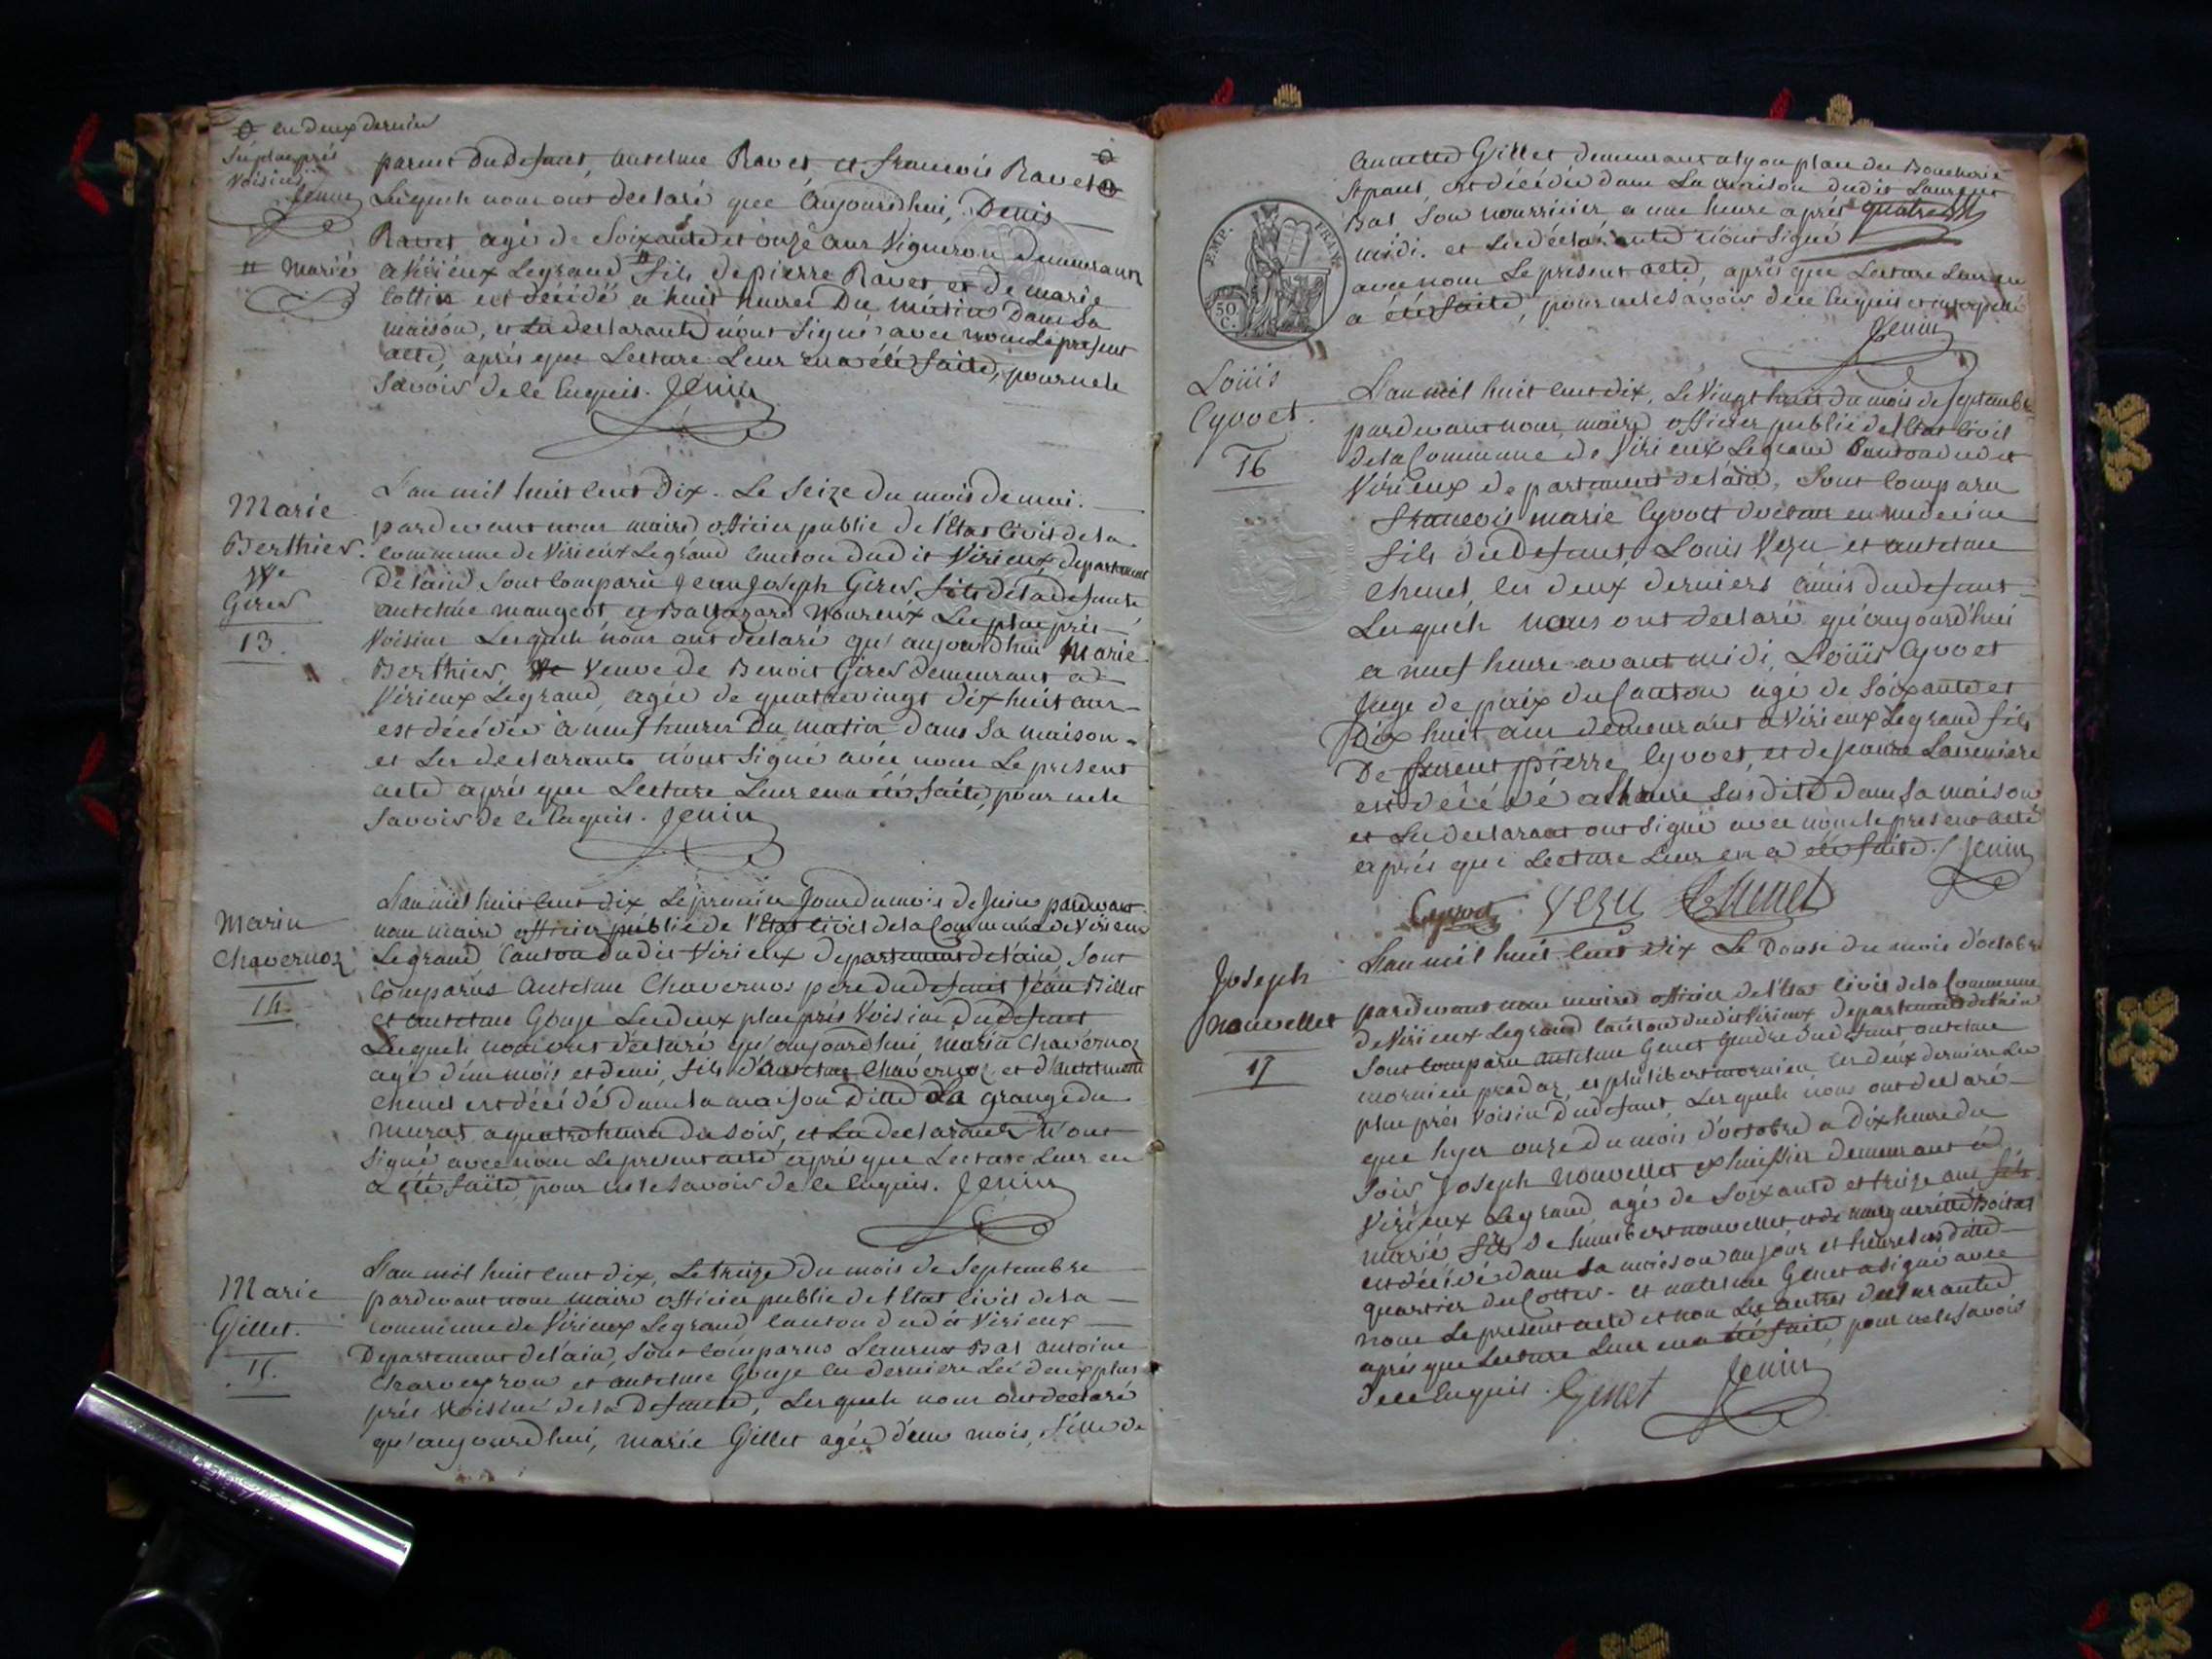 O les deux derniers
les plus près
voisins
Jenin
parents du defunt, anselme Ravet, et francois Ravet O
Lesquels nous ont declaré que aujourd'hui, Denis
Ravet agé de Soixante et onze ans Vigneron demeurant
# Marié
a Virieux Legrand # fils de pierre Ravet et de marie
Cottin est décédé a huit heures Du matin Dans Sa
maison, et Les declarants n'ont Signé avec nous Le present
acte, après que Lecture Leur en a été faite, pour ne le
Savoir de ce Enquis. Jenin
Marie
Berthier.
Vve
Girer
13.
L'an mil huit cent Dix. Le Seize Du mois de mai.
pardevant nous maire officier public de l'Etat Civil de la
commune de Virieux Legrand canton dudit Virieux, departement
De l'ain, Sont Comparu jean joseph Girer, fils de la defunte
antelme mangeot, et Baltazard Moureux Les plus près
Voisins Lesquels nous ont declaré qu'aujourd'hui Marie
Berthier, Veuve de Benoit Girer demeurant a
Virieux Legrand, agée de quatrevingt dix huit ans
est décédée à neuf heures Du matin dans Sa maison
et Les declarants n'ont Signé avec nous Le present
acte après que Lecture Leur en a été faite, pour ne le
Savoir de ce Enquis. Jenin
Marin
Chavernoz
14.
L'an mil huit cent dix Le premier Jour du mois de Juin pardevant
nous maire officier public de l'Etat Civil de la Commune de Virieux
Legrand Canton dudit Virieux departement de l'ain, Sont
Comparus Antelme Chavernoz pere du defunt Jean Billet
et antelme Gouje Les deux plus près Voisins Du defunt
Lesquels nous ont declaré qu'aujourd'hui marin Chavernoz
agé d'un mois et demi, fils d'antelme Chavernoz et d'antelmette
Chenet est décédé Dans la maison Ditte La grange du
murat a quatre heures Du Soir, et Les declarants n'ont
Signé avec nous Le present acte après que Lecture Leur en
a été faite, pour ne le Savoir de ce Enquis. Jenin
Marie
Gillet.
15.
L'an mil huit cent dix, Le treize Du mois de Septembre
pardevant nous maire officier public de l'Etat Civil de la
commune de Virieux Legrand canton dudit Virieux
Departement de l'ain, Sont comparus Laurent Bal antoine
Charveyron et antelme Gouje les derniers Les deux plus
près Voisins de la Defunte, Lesquels nous ont declaré
qu'aujourd'hui, marie Gillet agée d'un mois, fille de
annette Gillet demeurant a lyon place de Boucherie
St paul, est décédée dans La maison dudit Laurent
Bal Son nourricier a une heure après
midi. et Les déclarants n'ont Signé
avec nous Le present acte, après que Lecture Leur en
a été faite, pour ne le Savoir de ce Enquis et interpellé
Jenin
EMP. FRAN.
50
C.
Loüis
Cyvoct.
16
L'an mil huit cent dix, Le Vingt huit du mois de Septembre
pardevant nous, maire officier public de l'Etat Civil
de la Commune de Virieux Legrand Canton dudit
Virieux departement de l'ain, Sont Comparu
francois marie Cyvoct docteur en medecine
fils du Defunt, Louis Vezu et antelme
Chenet, les deux derniers amis du defunt
Lesquels nous ont declaré qu'aujourd'hui
a neuf heure avant midi, Loüis Cyvoct
Juge de paix du Canton agé de Soixante et
Dix huit ans demeurant a Virieux Legrand fils
De furent pierre Cyvoct, et de jeanne Laveniere
est décédé a l'heure Susdite dans Sa maison
et Les declarant ont Signé avec nous le present acte
après que Lecture Leur en a été faite. Jenin
Cyvoct Vezu Chenet
Joseph
Nouvellet
17
L'an mil huit cent dix Le Douse du mois d'octobre
pardevant nous maire officier de l'Etat Civil de la Commune
de Virieux Legrand canton dudit Virieux departement de l'ain
Sont Comparu antelme Genet gendre du defunt antelme
mornieu pradaz, et philibert mornieu les deux derniers Les
plus près Voisin Du defunt, Lesquels nous ont declaré
que hyer onze du mois d'octobre a dix heure du
Soir, Joseph Nouvellet ex huissier demeurant a
Virieux Legrand agé de Soixante et treize ans
marié, fils de humbert nouvellet et de marguerite Boital
est décédé dans Sa maison au jour et heure Susditte
quartier du Cotter. et antelme Genet a signé avec
nous Le present acte et non Les autres declarants
après que Lecture Leur en a été faite, pour ne le Savoir
de ce Enquis. Genet Jenin